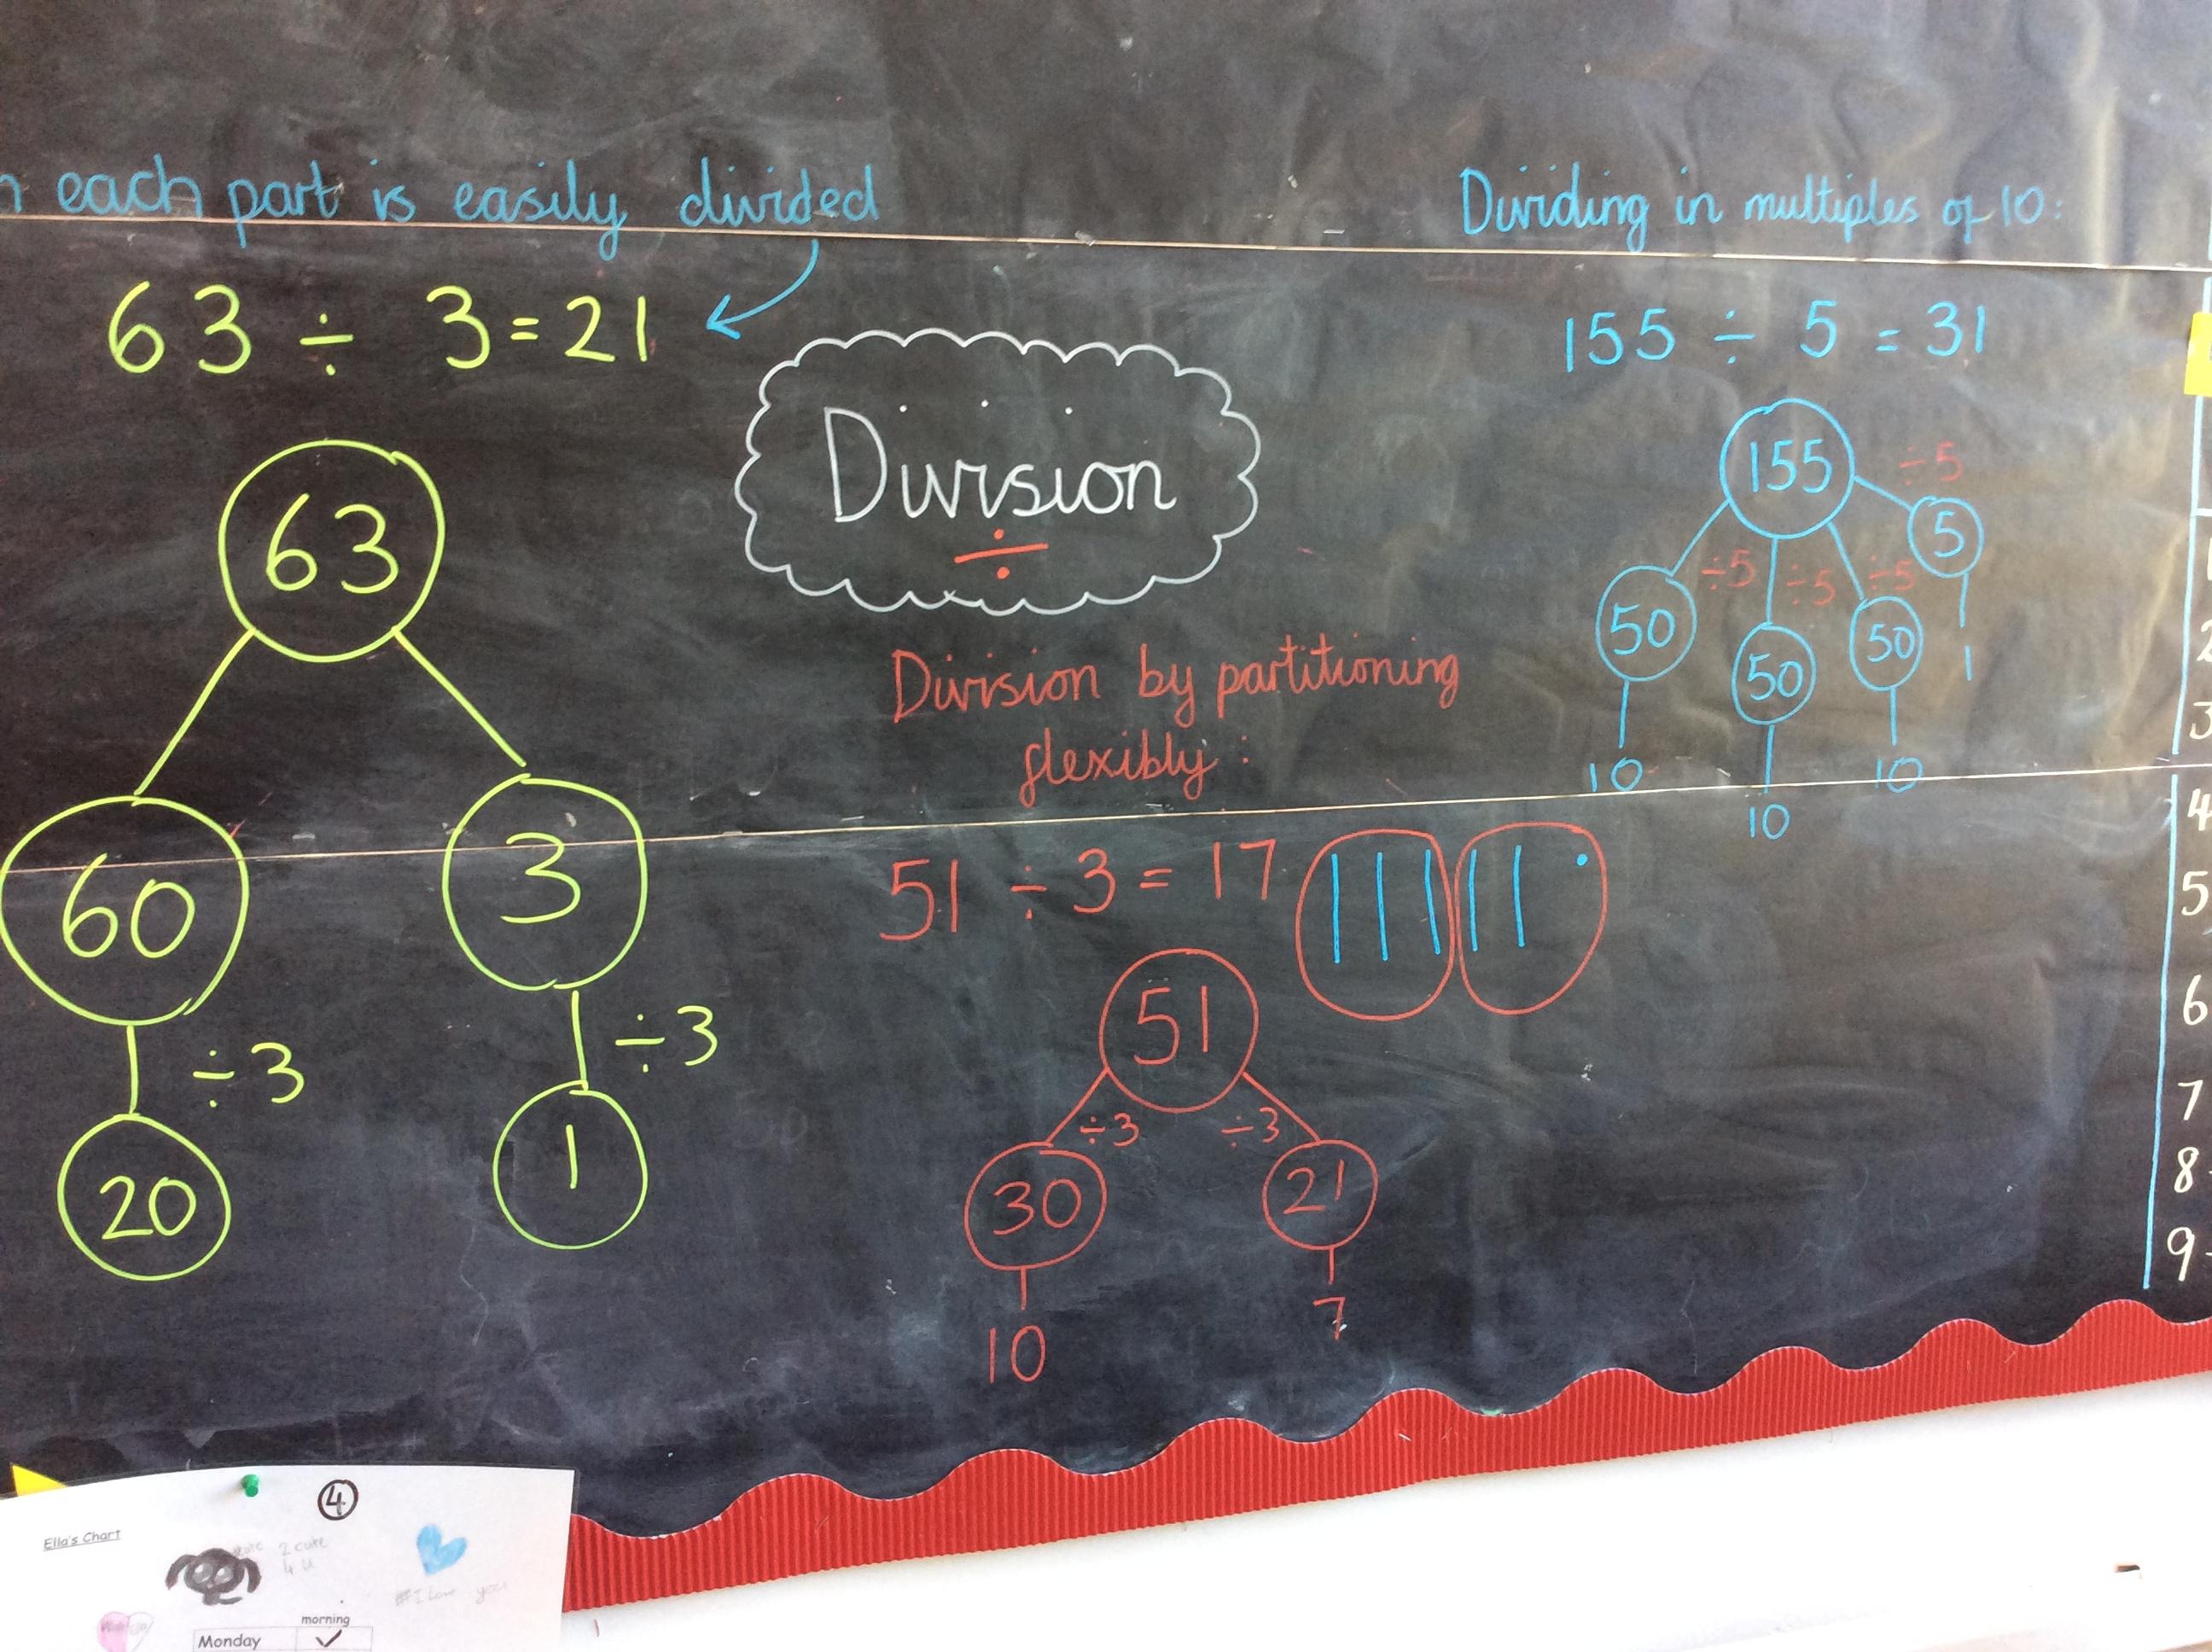 each part is easily divided
63 ÷ 3 = 21
63
60
3
÷3
÷3
20
1
Division
÷
Division by partitioning
flexibly :
51 ÷ 3 = 17
51
÷3
÷3
30
21
10
7
Dividing in multiples of 10:
155 ÷ 5 = 31
155
÷5
5
÷5
÷5
÷5
50
50
50
1
10
10
10
2
3
4
5
6
7
8
9
4
Ella's Chart
2 cute
4 U
#I Love you
morning
Monday